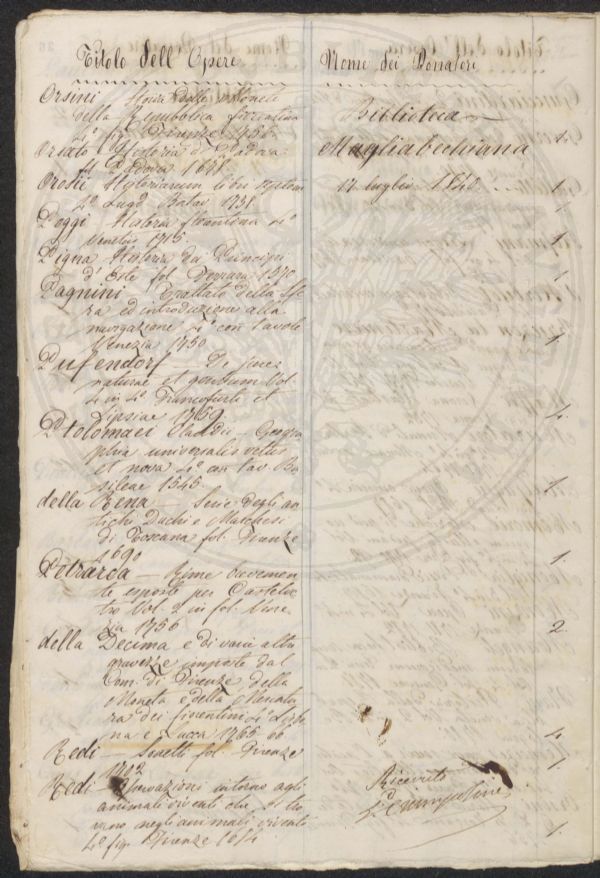 Titolo dell' Opere
Nome dei Donatori
Orsini Storia delle Monete
della Repubblica fiorentina
4.° fig. Firenze 1756
Biblioteca
Magliabechiana
17 luglio 1840
1.
Orsato Historia di Padova
fol. Padova 1678
1.
Orosii Historiarum libri septem
4.° Lugd. Batav. 1738.
1
Poggi Historia florentina 4.°
Venetiis 1715
1
Pigna Historia de' Principi
d' Este fol. Ferrara 1570
1
Pagnini Trattato della Sfe
ra ed introduzione alla
navigazione 4.° con tavole
Venezia 1750
1
Puffendorf — De jure
naturae et gentium Vol.
in 4.° Francofurti et
Lipsiae 1759.
4.
Ptolomaei Claudii — Geogra
phia universalis vetus
et nova 4.° con tav. Ba
sileae 1545
1.
della Rena — Serie degli an
tichi Duchi e Marchesi
di Toscana fol. Firenze
1690
1.
Petrarca — Rime brevemen
te esposte per Castelve
tro Vol. 2 in fol. Vene
zia 1756
2.
della Decima e di varie altre
gravezze imposte dal
Com. di Firenze, della
Moneta e della Mercatu
ra dei fiorentini 4.° Lisbo
na e Lucca 1765 66
4
Redi — Sonetti fol. Firenze
1702
1
Redi Osservazioni intorno agli
animali viventi che si tro
vano negli animali viventi
4.° fig. Firenze 1684
Ricevuto
1.